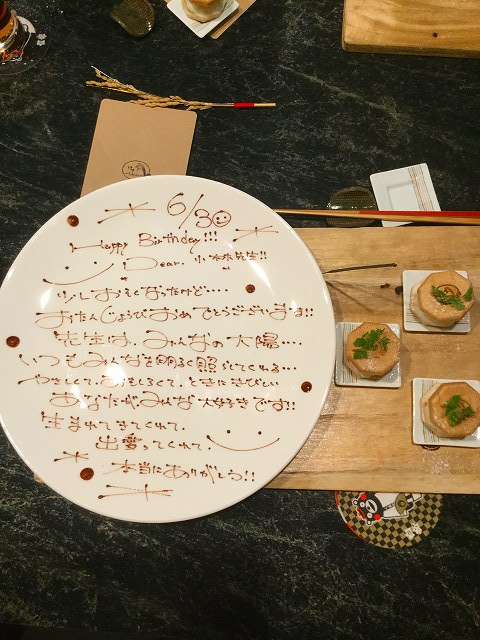 6/30
Happy Birthday!!!
Dear. 小林先生!!
少しおそくなったけど....
おたんじょうびおめでとうございます!!
先生は、みんなの太陽....
いつもみんなを明るく照らしてくれる...
やさしくて、おもしろくて、ときにきびしい
あなたが、みんな大好きです!!
生まれてきてくれて、
出愛ってくれて、
本当にありがとう!!